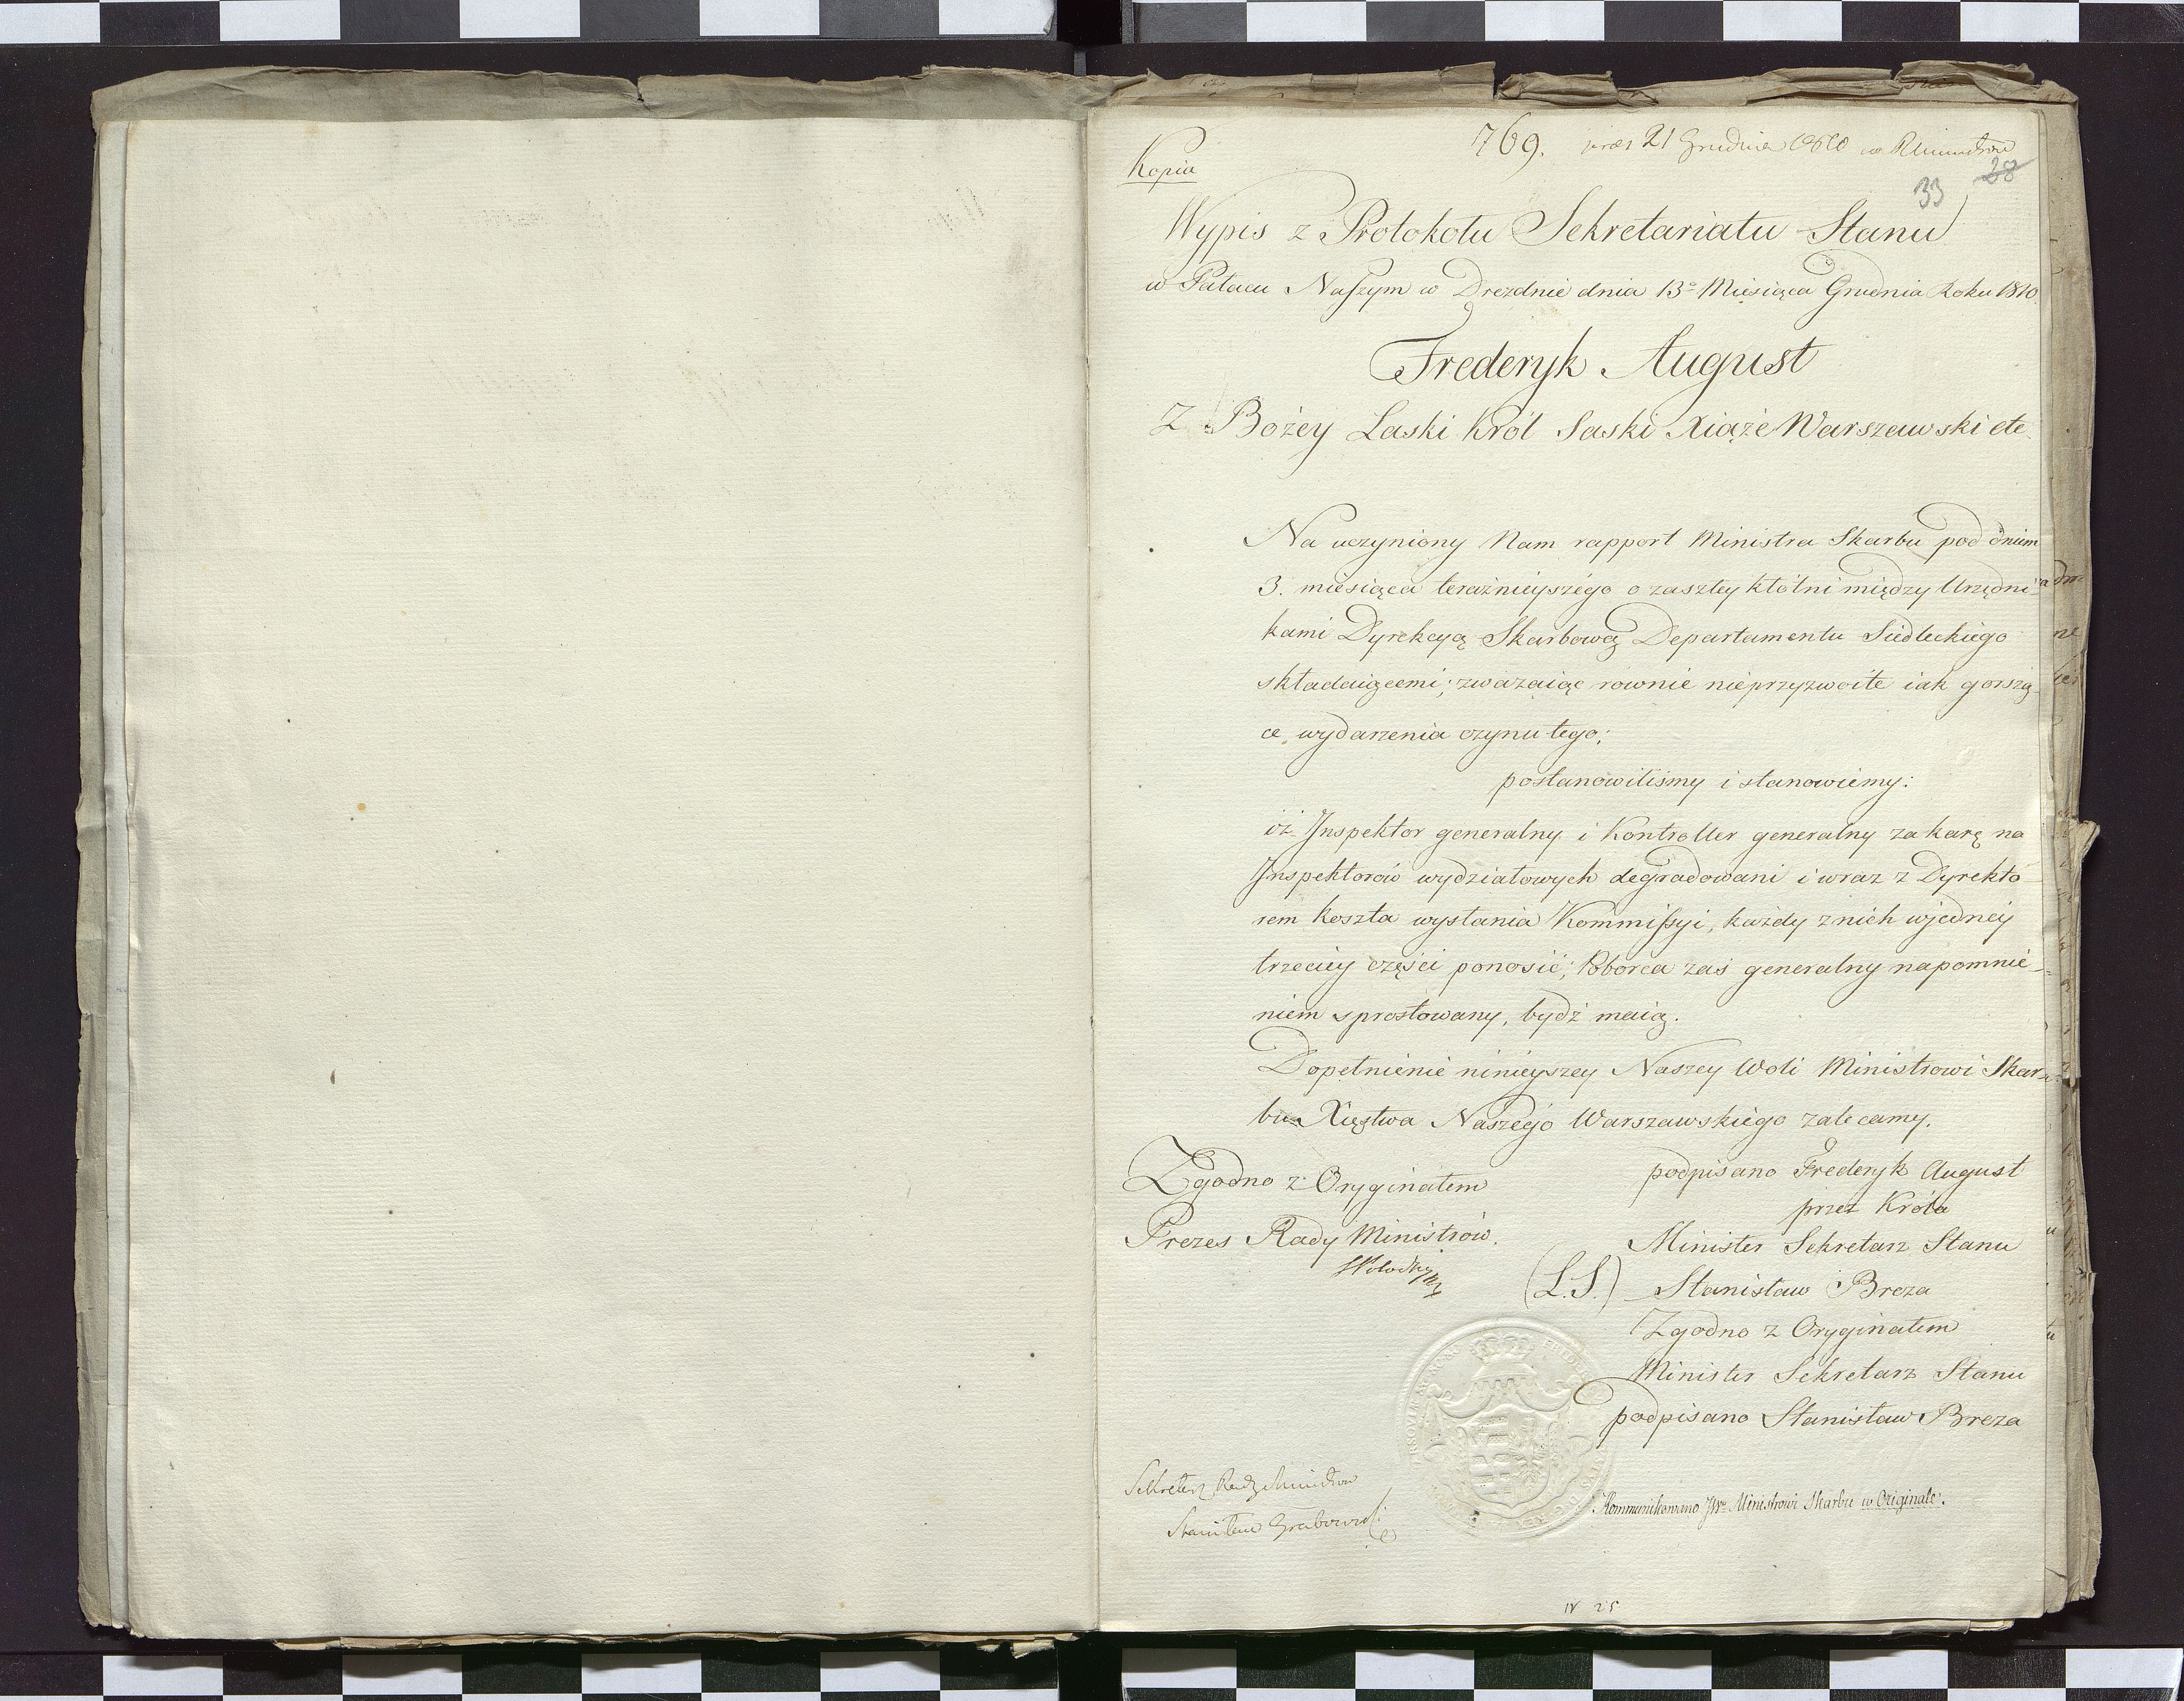 Kopia
769. praes 21 Grudnia 1810 w R Ministrów
28
33
Wypis z Protokołu Sekretariatu Stanu
w Pałacu Naszym w Dreznie dnia 13º Miesiąca Grudnia Roku 1810
Frederyk August
Z Bożey Łaski Król Saski Xiąże Warszawski etc.
Na uczyniony Nam rapport Ministra Skarbu pod dniem
3. miesiąca teraźnieyszégo o zaszłey kłótni między Urzędni-
kami Dyrekcyą Skarbową Departamentu Siedleckiego
składaiącemi; zważaiąc równie nieprzyzwoite iak gorszą-
ce wydarzenia czynu tego;
postanowiliśmy i stanowiemy:
iż Inspektor generalny i Kontroller generalny za karę na
Inspektorów wydziałowych degradowani i wraz z Dyrekto-
rem koszta wysłania Kommissyi, każdy z nich w jedney
trzeciey części ponosić; Poborca zaś generalny napomnie-
niem sprostowany, bydź maią.
Dopełnienie ninieyszey Naszey Woli Ministrowi Skar-
bu Xięstwa Naszégo Warszawskiégo zalecamy.
Zgodno z Oryginałem
Prezes Rady Ministrów.
podpisano Frederyk August
przez Króla
Minister Sekretarz Stanu
(L.S.) Stanisław Breza
Zgodno z Oryginałem
Minister Sekretarz Stanu
podpisano Stanisław Breza
Sekretarz Rady Ministrów
Stanisław Grabowski
Kommunikowano JWº Ministrowi Skarbu w Originale.
IV 25